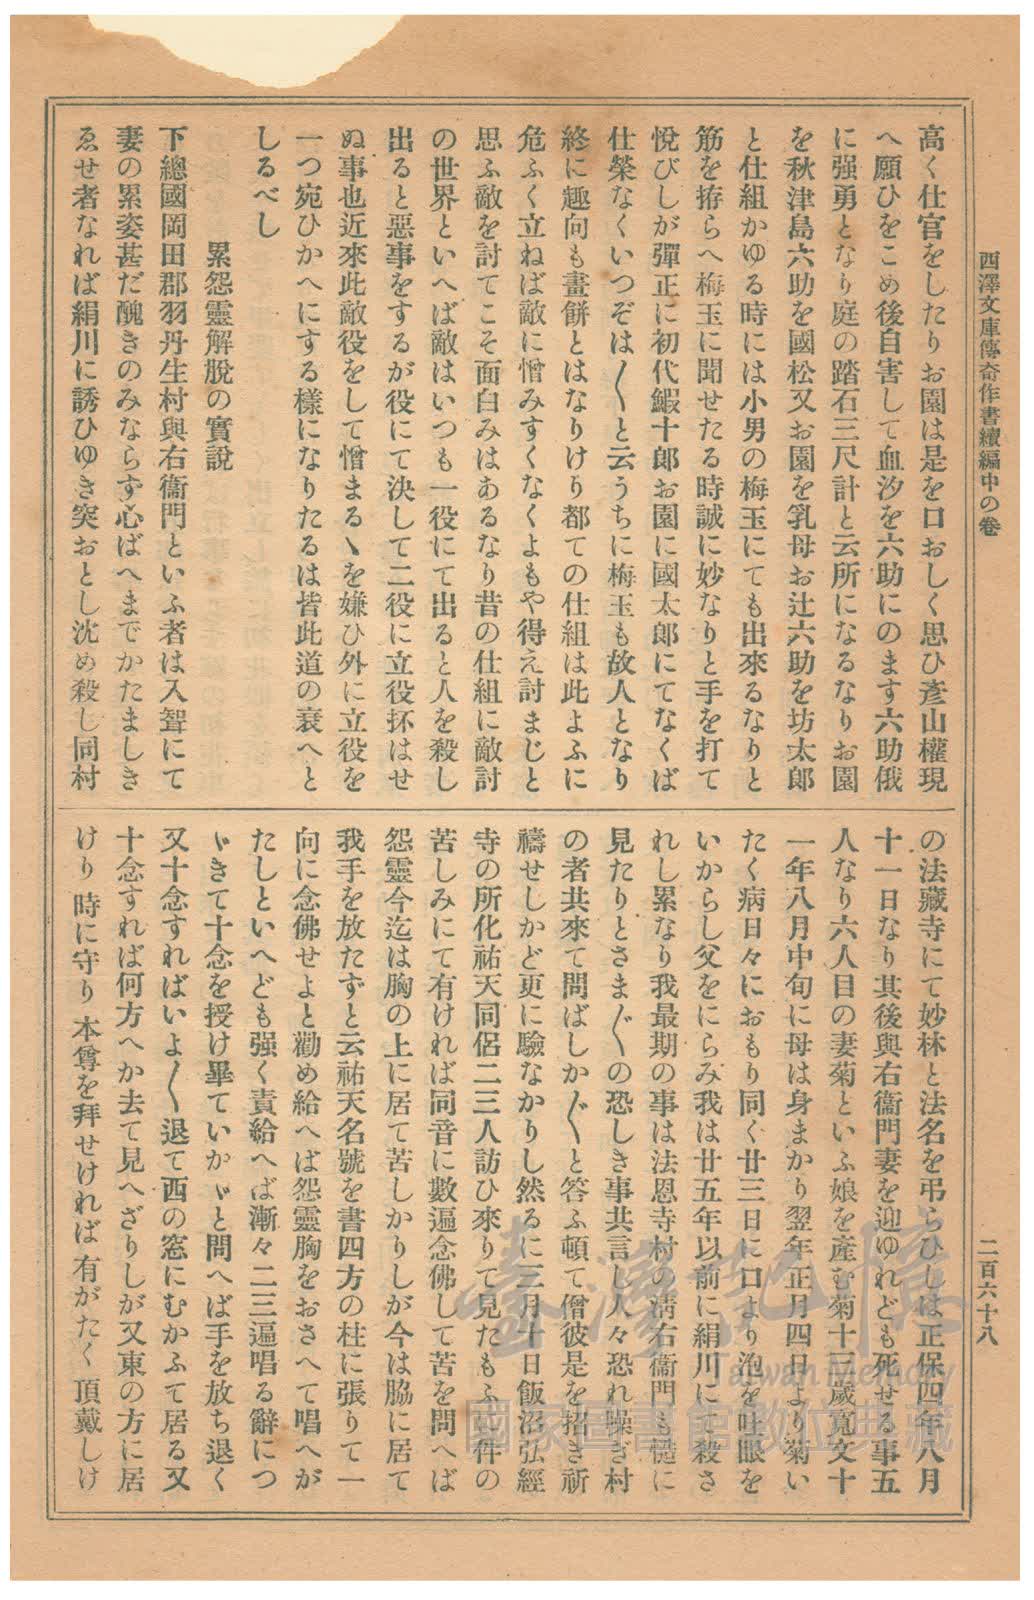 西澤文庫傳奇作書續編中の卷
二百六十八
高く仕官をしたりお園は是を口おしく思ひ彥山權現
へ願ひをこめ後自害して血汐を六助にのます六助俄
に强勇となり庭の踏石三尺計と云所になるなりお園
を秋津島六助を國松又お園を乳母お辻六助を坊太郞
と仕組かゆる時には小男の梅玉にても出來るなりと
筋を拵らへ梅玉に聞せたる時誠に妙なりと手を打て
悅びしが彈正に初代鰕十郞お園に國太郞にてなくば
仕榮なくいつぞは〳〵と云うちに梅玉も故人となり
終に趣向も畫餠とはなりけり都ての仕組は此よふに
危ふく立ねば敵に憎みすくなくよもや得え討まじと
思ふ敵を討てこそ面白みはあるなり昔の仕組に敵討
の世界といへば敵はいつも一役にて出ると人を殺し
出ると惡事をするが役にて決して二役に立役抔はせ
ぬ事也近來此敵役をして憎まるヽを嫌ひ外に立役を
一つ宛ひかへにする樣になりたるは皆此道の衰へと
しるべし
累怨靈解脫の實說
下總國岡田郡羽丹生村與右衞門といふ者は入聟にて
妻の累姿甚だ醜きのみならず心ばへまでかたましき
ゑせ者なれば絹川に誘ひゆき突おとし沈め殺し同村
の法藏寺にて妙林と法名を弔らひしは正保四年八月
十一日なり其後與右衞門妻を迎ゆれども死せる事五
人なり六人目の妻菊といふ娘を產む菊十三歲寬文十
一年八月中旬に母は身まかり翌年正月四日より菊い
たく病日々におもり同く廿三日に口より泡を吐眼を
いからし父をにらみ我は廿五年以前に絹川にて殺さ
れし累なり我最期の事は法恩寺村の淸右衞門も慥に
見たりとさま〴〵の恐しき事共言し人々恐れ噪ぎ村
の者共來て問ばしか〴〵と答ふ頓て僧彼是を招き祈
禱せしかど更に驗なかりし然るに三月十日飯沼弘經
寺の所化祐天同侶二三人訪ひ來りて見たもふに件の
苦しみにて有ければ同音に數遍念佛して苦を問へば
怨靈今迄は胸の上に居て苦しかりしが今は脇に居て
我手を放たずと云祐天名號を書四方の柱に張りて一
向に念佛せよと勸め給へば怨靈胸をおさへて唱へが
たしといへども强く責給へば漸々二三遍唱る辭につ
ヾきて十念を授け畢ていかヾと問へば手を放ち退く
又十念すればいよ〳〵退て西の窓にむかふて居る又
十念すれば何方へか去て見へざりしが又東の方に居
けり時に守り本尊を拜せければ有がたく頂戴しけ
臺灣記憶
Taiwan Memory
國家圖書館數位典藏